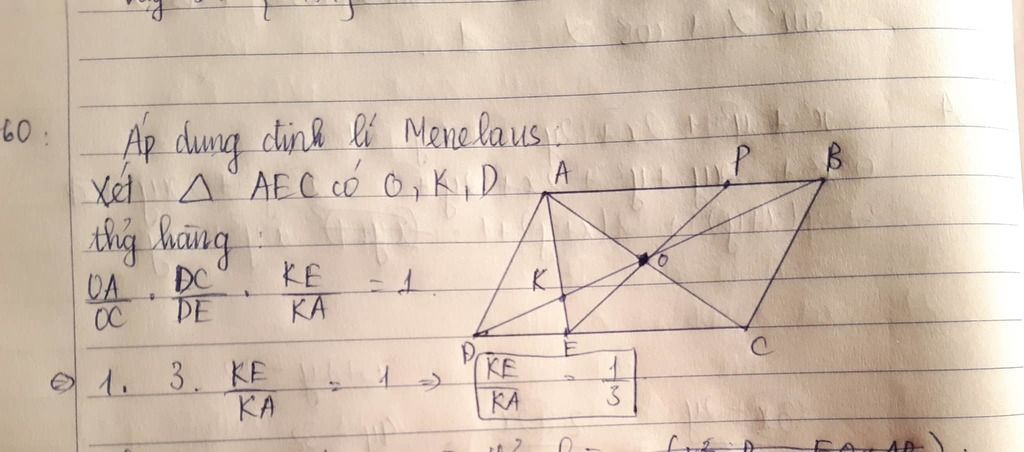 60:
Áp dụng định lí Menelaus:
Xét △ AEC có O, K, D
thẳng hàng:
OA/OC . DC/DE . KE/KA = 1.
⇔ 1. 3. KE/KA = 1 ⇒ KE/KA = 1/3
A P B
K O
D E C